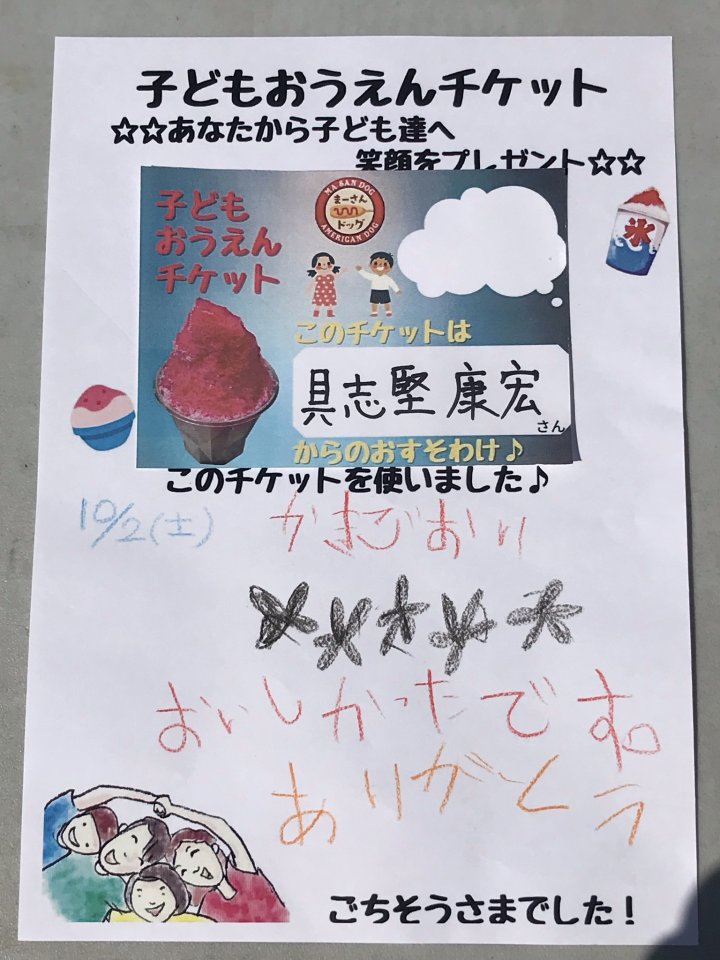 子どもおうえんチケット
☆☆あなたから子ども達へ
笑顔をプレゼント☆☆
子ども
おうえん
チケット
MA SAN DOG
まーさん
ドッグ
AMERICAN DOG
氷
このチケットは
具志堅 康宏
さん
からのおすそわけ♪
このチケットを使いました♪
10/2(土)
かきごおり
おいしかったです。
ありがとう
ごちそうさまでした!